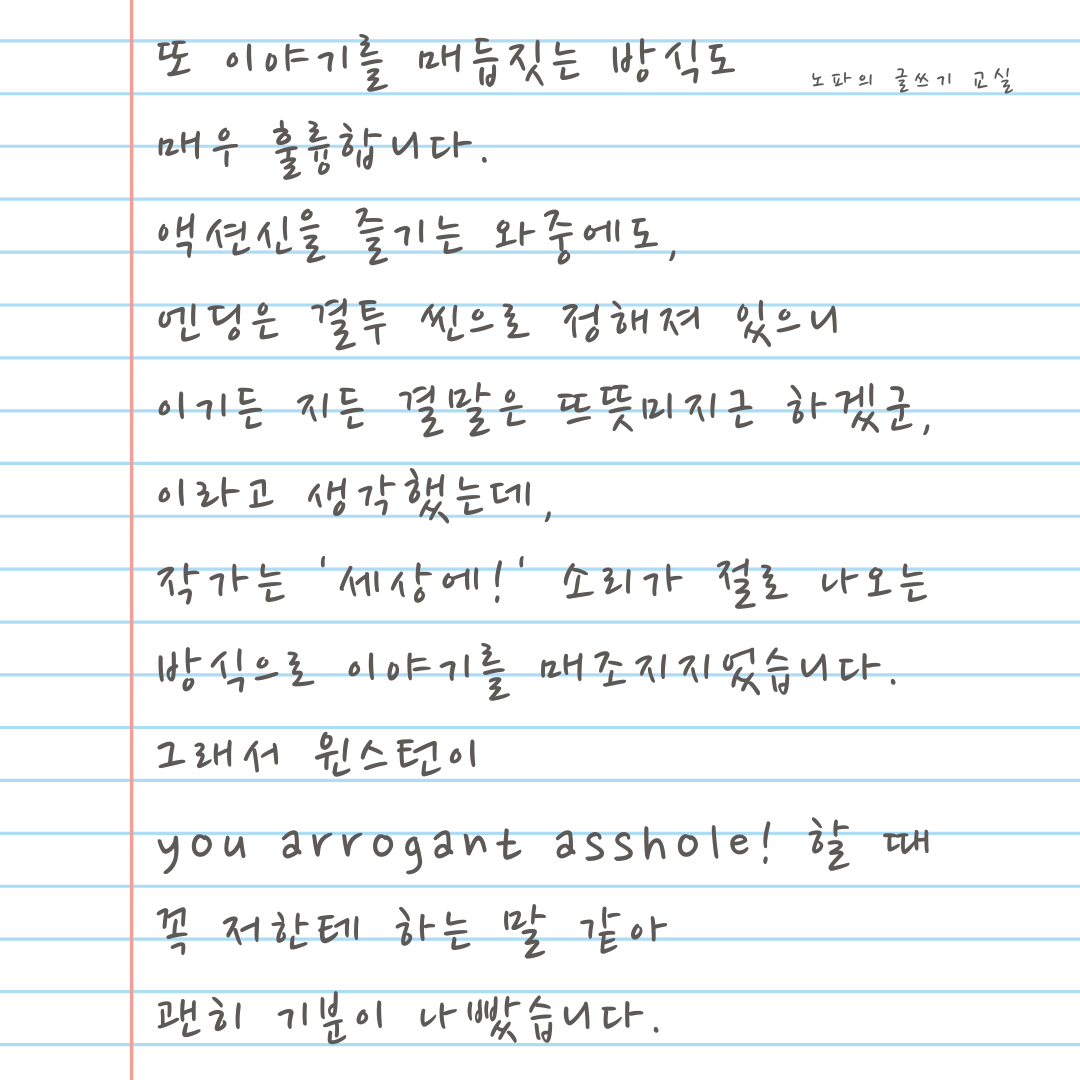 또 이야기를 매듭짓는 방식도
노파의 글쓰기 교실
매우 훌륭합니다.
액션신을 즐기는 와중에도,
엔딩은 결투 씬으로 정해져 있으니
이기든 지든 결말은 뜨뜻미지근 하겠군,
이라고 생각했는데,
작가는 '세상에!' 소리가 절로 나오는
방식으로 이야기를 매조지지었습니다.
그래서 윈스턴이
you arrogant asshole! 할 때
꼭 저한테 하는 말 같아
괜히 기분이 나빴습니다.